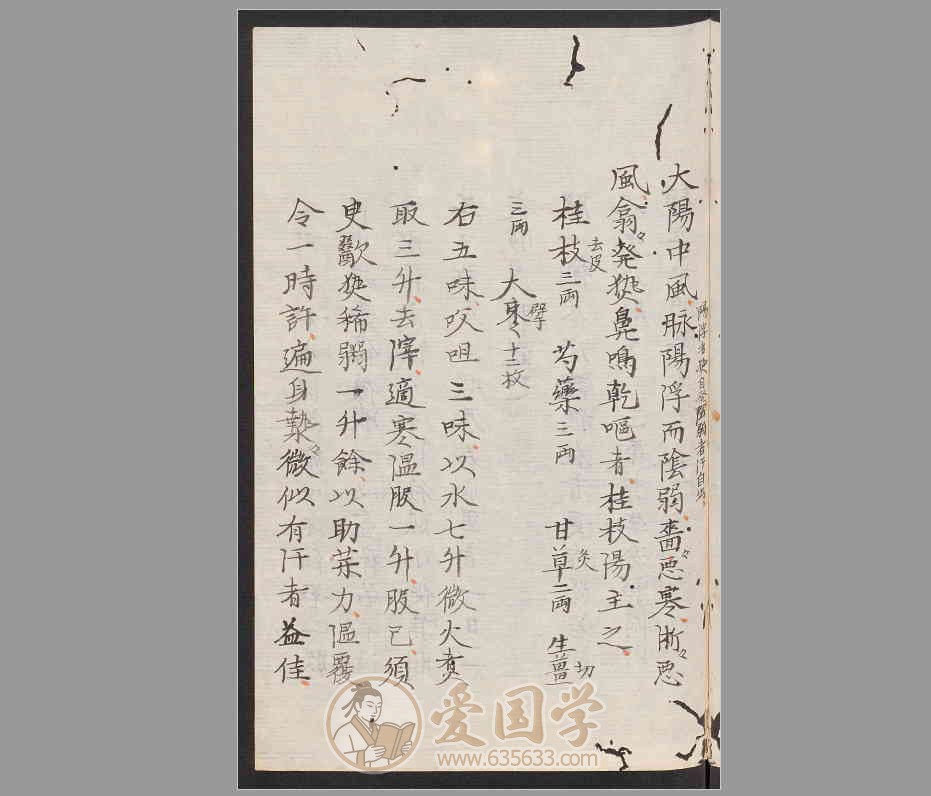 大陽中風脉陽浮而陰弱嗇々悪寒淅々悪
陽浮者熱自発陰弱者汗自出
風翕々発熱鼻鳴乾嘔者桂枝陽主之
桂枝去皮三両 芍藥三両 甘草炙二両 生薑切
三両 大棗擘十二枚
右五味㕮咀三味以水七升微火煑
取三升去滓適寒温服一升服已須
臾歠熱稀粥一升餘以助薬力温覆
令一時許遍身漐々微似有汗者益佳
爱国学
www.635633.com